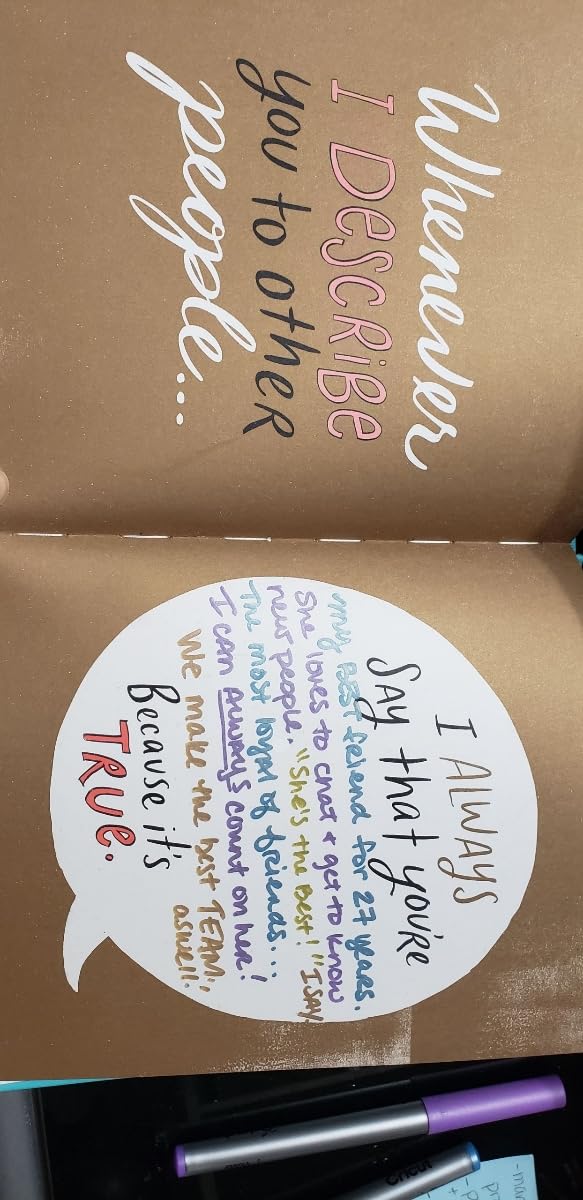 Whenever
I DESCRIBE
you to other
people...
I ALWAYS
SAY that you're
my BEST friend for 27 years.
She loves to chat & get to know
new people. "She's the Best!" I SAY.
The most loyal of friends...
I can ALWAYS count on her!
We make the best TEAM,
aswell!
Because it's
TRUE.
cricut